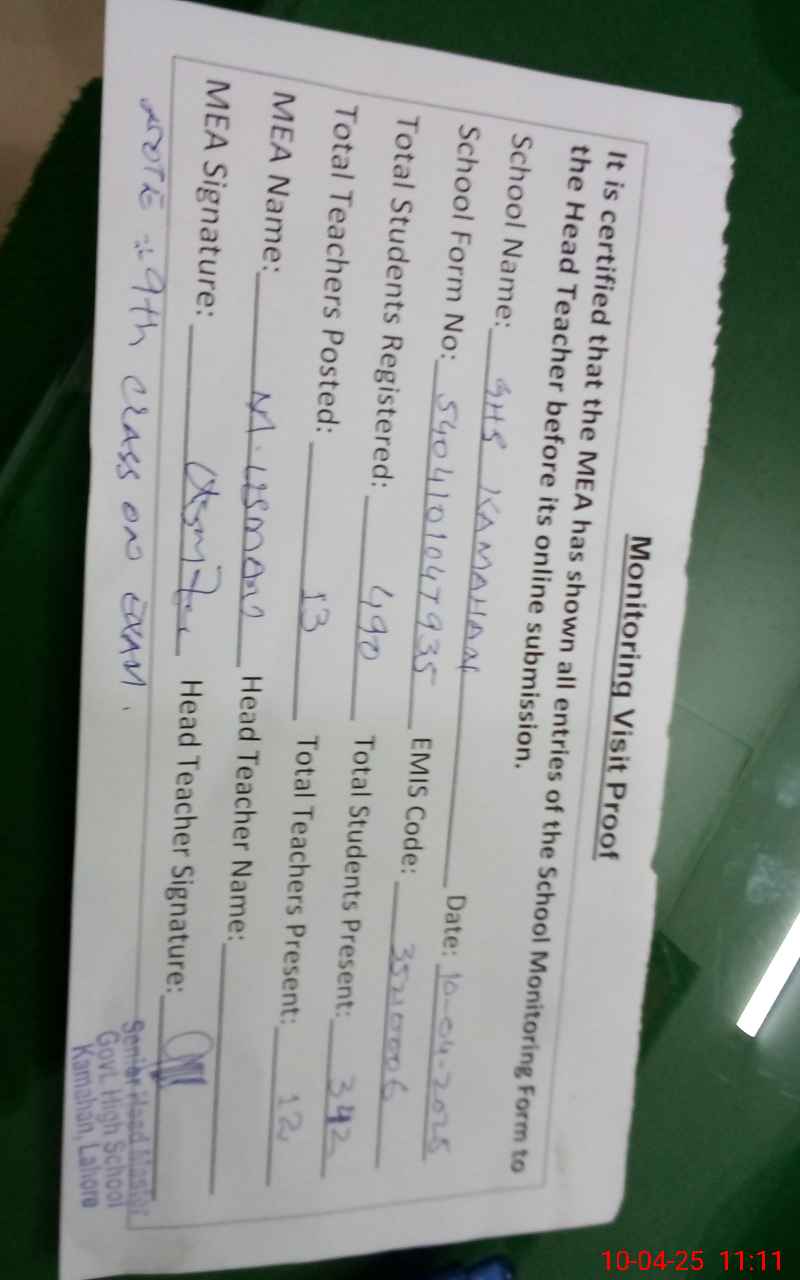 Monitoring Visit Proof
It is certified that the MEA has shown all entries of the School Monitoring Form to
the Head Teacher before its online submission.
School Name: GHS KAMAHAN Date: 10-04-2025
School Form No: 5404101047935 EMIS Code: 35210006
Total Students Registered: 490 Total Students Present: 342
Total Teachers Posted: 13 Total Teachers Present: 12
MEA Name: M. USMAN Head Teacher Name:
MEA Signature: Head Teacher Signature:
NOTE :- 9th CLASS ON EXAM.
Senior Head Master
Govt. High School
Kamahan, Lahore
10-04-25 11:11